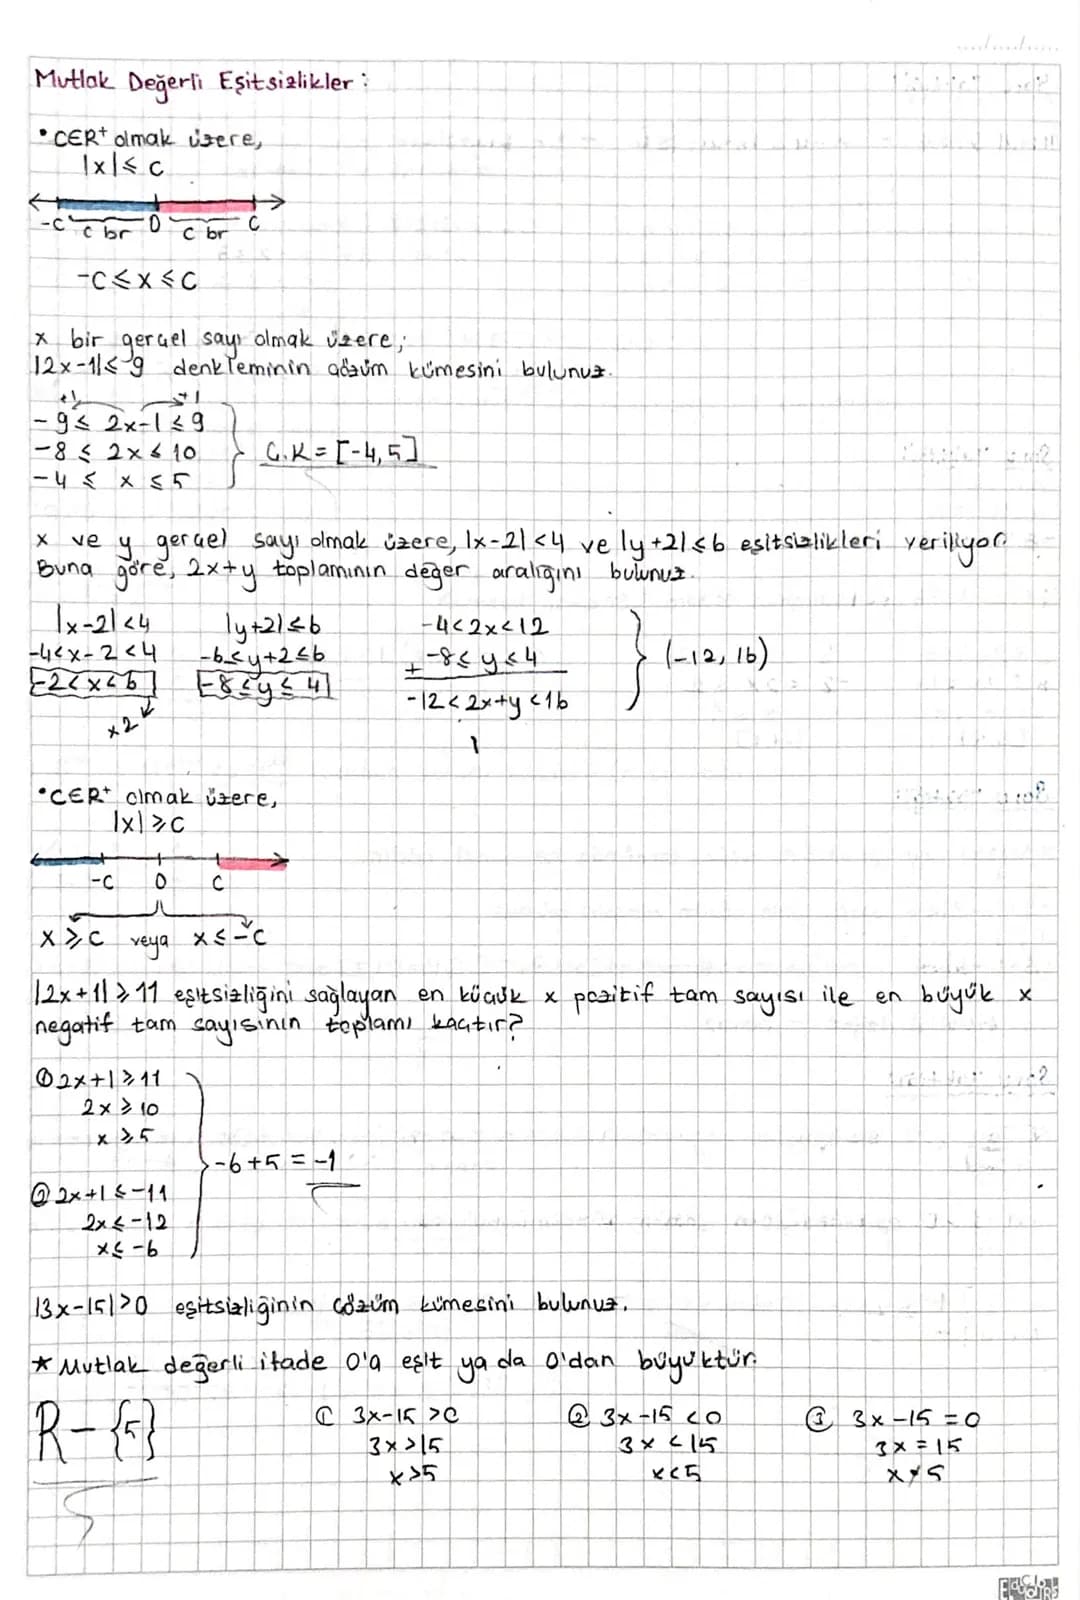 Mutlak Değerli Eşitsizlikler :
• CER⁺ olmak üzere,
|x| ≤ c
-c c br 0 c br c
-c ≤ x ≤ c
x bir gerçel sayı olmak üzere;
|2x-1| ≤ 9 denkleminin çözüm kümesini bulunuz.
+1 +1
-9 ≤ 2x-1 ≤ 9
-8 ≤ 2x ≤ 10 Ç.K = [-4,5]
-4 ≤ x ≤ 5
x ve y gerçel sayı olmak üzere, |x-2| < 4 ve |y+2| ≤ 6 eşitsizlikleri veriliyor.
Buna göre, 2x+y toplamının değer aralığını bulunuz.
|x-2| < 4 |y+2| ≤ 6 -4 < 2x < 12
-4 < x-2 < 4 -6 ≤ y+2 ≤ 6 + -8 ≤ y ≤ 4 (-12, 16)
-2 < x < 6 -8 ≤ y ≤ 4 -12 < 2x+y < 16
x2
• CER⁺ olmak üzere,
|x| ≥ c
-c 0 c
x ≥ c veya x ≤ -c
|2x+1| ≥ 11 eşitsizliğini sağlayan en küçük x pozitif tam sayısı ile en büyük x
negatif tam sayısının toplamı kaçtır?
① 2x+1 ≥ 11
2x ≥ 10
x ≥ 5
-6+5 = -1
② 2x+1 ≤ -11
2x ≤ -12
x ≤ -6
|3x-15| > 0 eşitsizliğinin çözüm kümesini bulunuz.
* Mutlak değerli ifade 0'a eşit ya da 0'dan büyüktür.
R - {5} ① 3x-15 > 0 ② 3x-15 < 0 ③ 3x-15 = 0
3x > 15 3x < 15 3x = 15
x > 5 x < 5 x ≠ 5